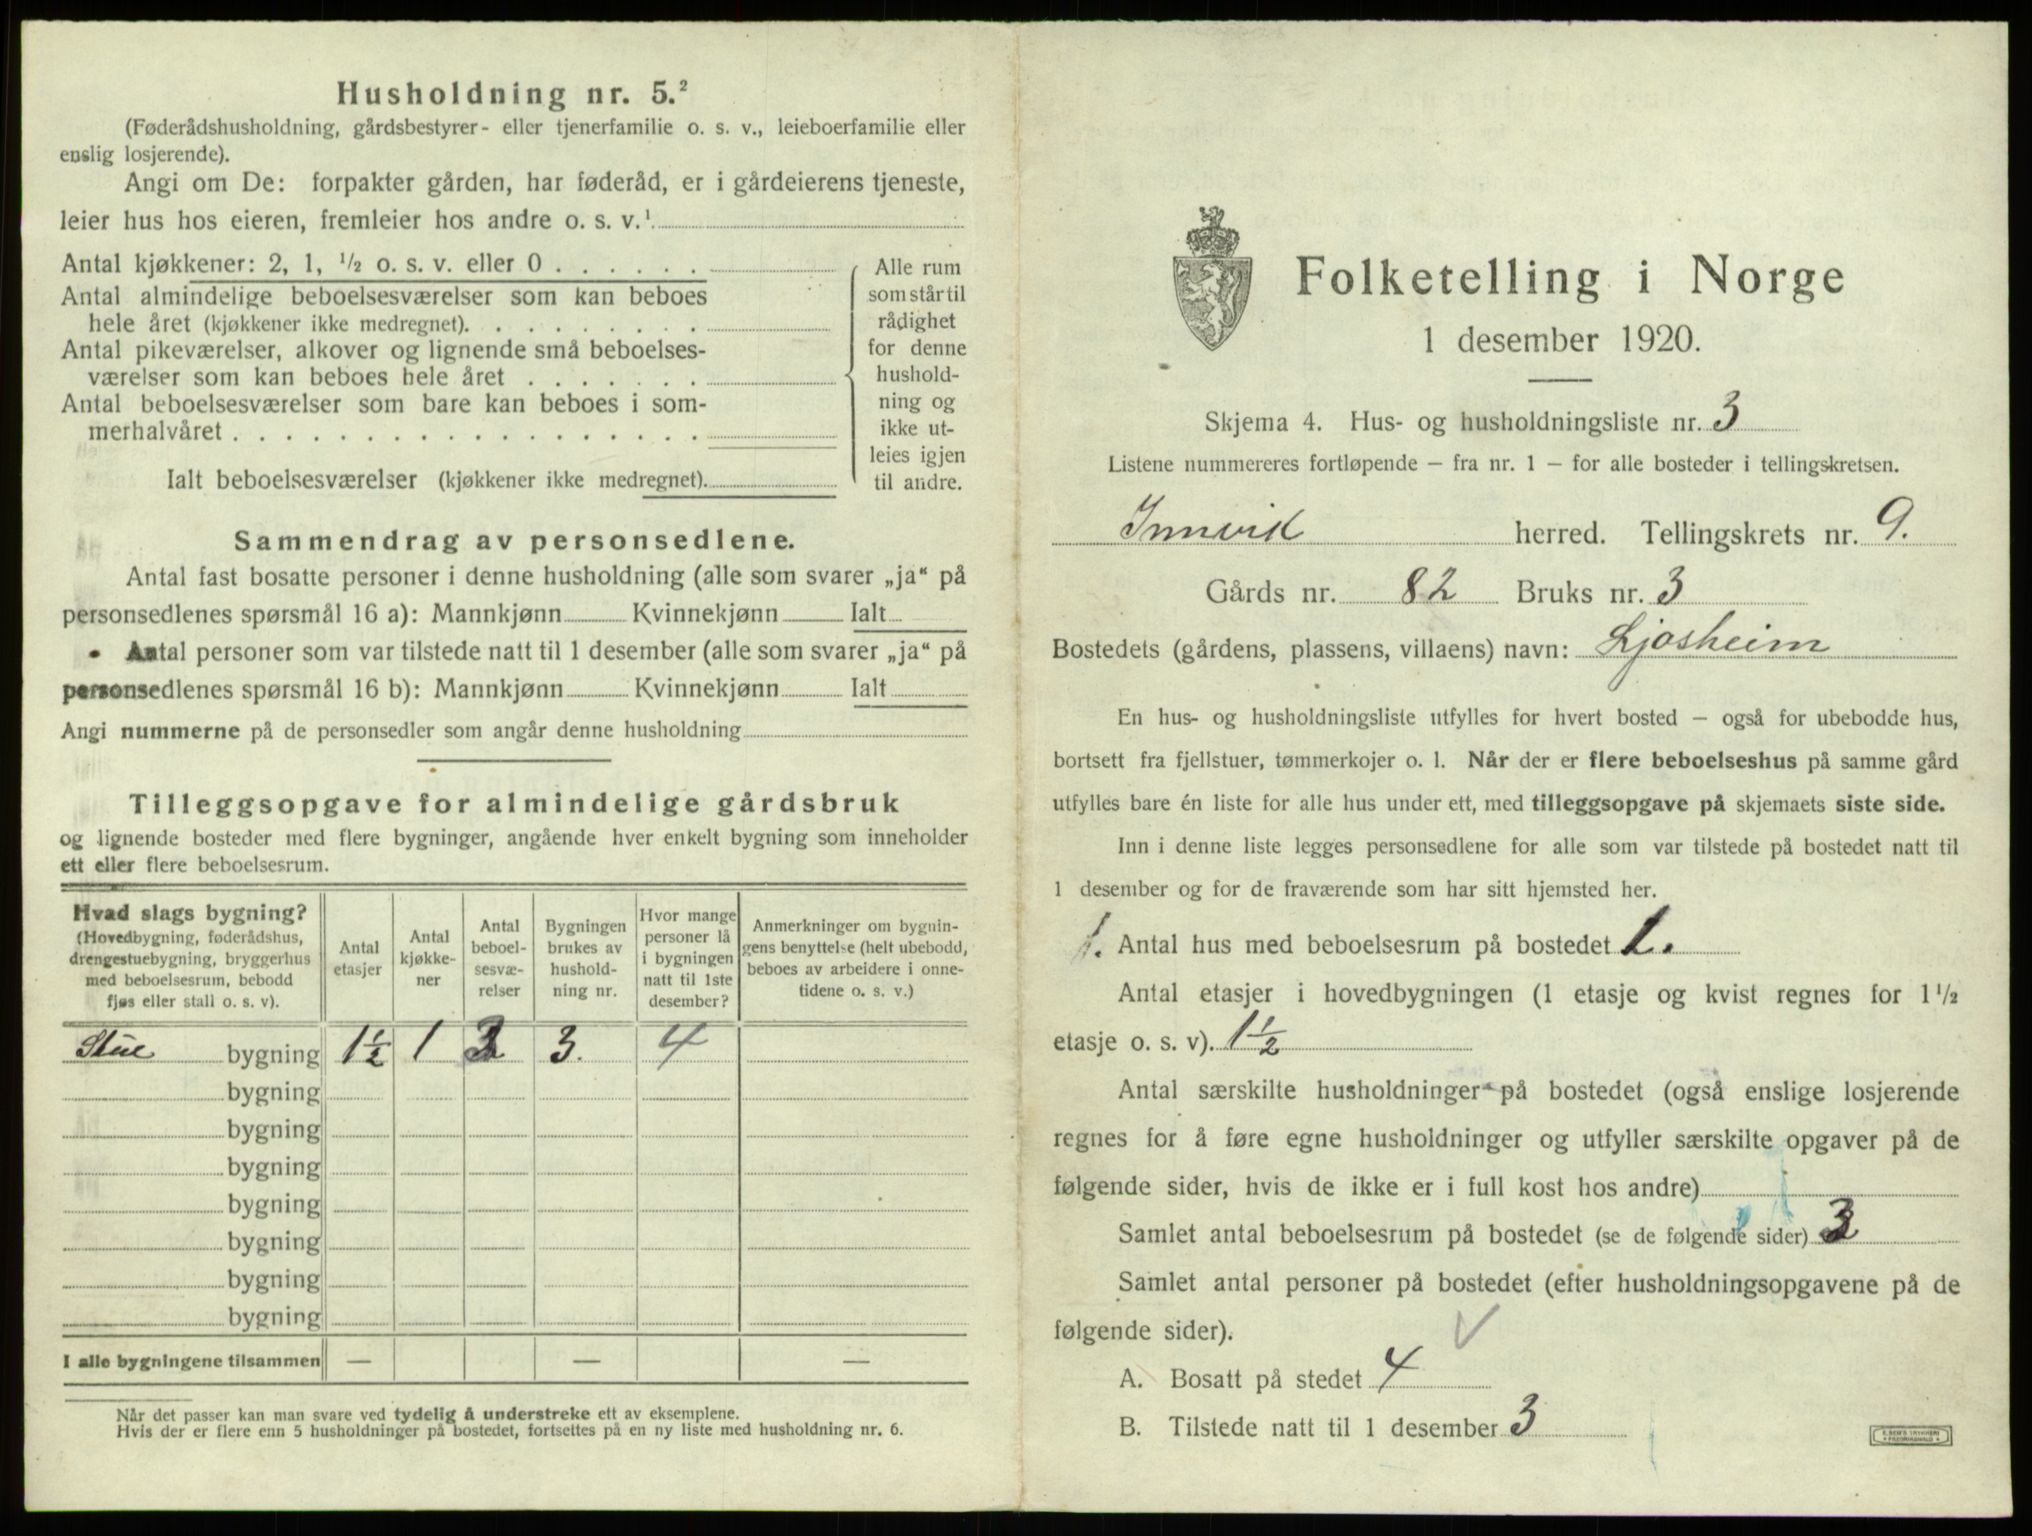 Husholdning nr. 5.²
(Føderådshusholdning, gårdsbestyrer- eller tjenerfamilie o. s. v., leieboerfamilie eller
enslig losjerende).
Angi om De: forpakter gården, har føderåd, er i gårdeierens tjeneste,
leier hus hos eieren, fremleier hos andre o. s. v.¹
Antal kjøkkener: 2, 1, ½ o. s. v. eller 0 . . . . . .
Antal almindelige beboelsesværelser som kan beboes
hele året (kjøkkener ikke medregnet). . . . . . . . .
Antal pikeværelser, alkover og lignende små beboelses-
værelser som kan beboes hele året . . . . . . .
Antal beboelsesværelser som bare kan beboes i som-
merhalvåret . . . . . . . . . . . . . . . . . .
Ialt beboelsesværelser (kjøkkener ikke medregnet).
Alle rum
som står til
rådighet
for denne
hushold-
ning og
ikke ut-
leies igjen
til andre.
Sammendrag av personsedlene.
Antal fast bosatte personer i denne husholdning (alle som svarer „ja“ på
personsedlenes spørsmål 16 a): Mannkjønn Kvinnekjønn Ialt
Antal personer som var tilstede natt til 1 desember (alle som svarer „ja“ på
personsedlenes spørsmål 16 b): Mannkjønn Kvinnekjønn Ialt
Angi nummerne på de personsedler som angår denne husholdning
Tilleggsopgave for almindelige gårdsbruk
og lignende bosteder med flere bygninger, angående hver enkelt bygning som inneholder
ett eller flere beboelsesrum.
Hvad slags bygning?
(Hovedbygning, føderådshus,
drengestuebygning, bryggerhus
med beboelsesrum, bebodd
fjøs eller stall o. s. v).
Antal
etasjer
Antal
kjøkke-
ner
Antal
beboel-
sesvæ-
relser
Bygningen
brukes av
hushold-
ning nr.
Hvor mange
personer lå
i bygningen
natt til 1ste
desember?
Anmerkninger om bygnin-
gens benyttelse (helt ubebodd,
beboes av arbeidere i onne-
tidene o. s. v.)
Stue bygning 1½ 1 3 3. 4
bygning
bygning
bygning
bygning
bygning
bygning
bygning
I alle bygningene tilsammen — — —
Når det passer kan man svare ved tydelig å understreke ett av eksemplene.
Hvis der er flere enn 5 husholdninger på bostedet, fortsettes på en ny liste med husholdning nr. 6.
Folketelling i Norge
1 desember 1920.
Skjema 4. Hus- og husholdningsliste nr. 3
Listene nummereres fortløpende – fra nr. 1 – for alle bosteder i tellingskretsen.
Innvik herred. Tellingskrets nr. 9.
Gårds nr. 82 Bruks nr. 3
Bostedets (gårdens, plassens, villaens) navn: Ljosheim
En hus- og husholdningsliste utfylles for hvert bosted – også for ubebodde hus,
bortsett fra fjellstuer, tømmerkojer o. l. Når der er flere beboelseshus på samme gård
utfylles bare én liste for alle hus under ett, med tilleggsopgave på skjemaets siste side.
Inn i denne liste legges personsedlene for alle som var tilstede på bostedet natt til
1 desember og for de fraværende som har sitt hjemsted her.
1. Antal hus med beboelsesrum på bostedet 1.
Antal etasjer i hovedbygningen (1 etasje og kvist regnes for 1½
etasje o. s. v). 1½
Antal særskilte husholdninger på bostedet (også enslige losjerende
regnes for å føre egne husholdninger og utfyller særskilte opgaver på de
følgende sider, hvis de ikke er i full kost hos andre)
Samlet antal beboelsesrum på bostedet (se de følgende sider) 3
Samlet antal personer på bostedet (efter husholdningsopgavene på de
følgende sider).
A. Bosatt på stedet 4
B. Tilstede natt til 1 desember 3